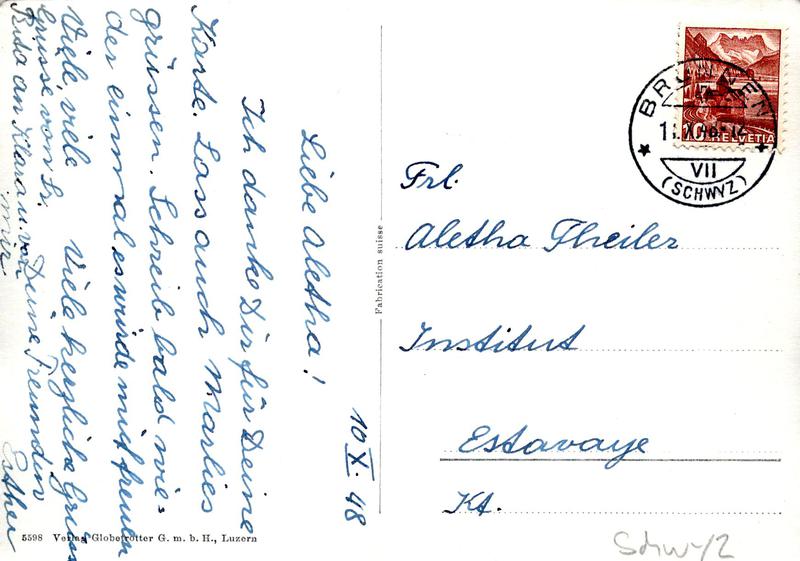 10 X. 48
Liebe Aletha!
Ich danke Dir für Deine
Karte. Lass auch Marlies
grüssen. Schreib bald wie-
der einmal es würde mich freuen
Viele, viele
Grüsse von Sr.
Rita an Klara u. von
mir.
Viele herzliche Grüsse
Deine Freundin
Esther
Fabrication suisse
5598 Verlag Globetrotter G. m. b. H., Luzern
BRUNNEN
VII
(SCHWYZ)
10 HELVETIA
Frl.
Aletha Theiler
Institut
Estavaye
Kt.
Schwyz